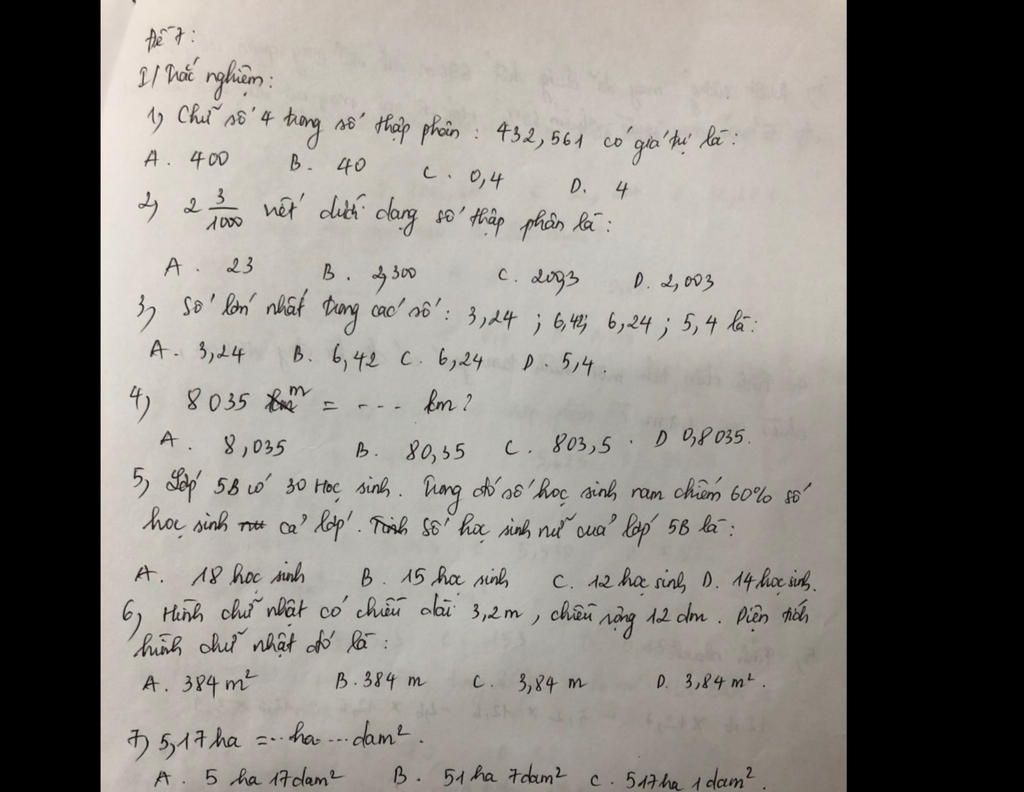 Đề 7:
I/ Trắc nghiệm:
1, Chữ số 4 trong số thập phân : 432,561 có giá trị là :
A. 400 B. 40 C. 0,4 D. 4
2, 2 3/1000 viết dưới dạng số thập phân là :
A. 23 B. 2,300 C. 20,3 D. 2,003
3, Số lớn nhất trong các số : 3,24 ; 6,42; 6,24 ; 5,4 là :
A. 3,24 B. 6,42 C. 6,24 D. 5,4.
4, 8035 m = ... km ?
A. 8,035 B. 80,35 C. 803,5 . D 0,8035.
5, Lớp 5B có 30 học sinh . Trong đó số học sinh nam chiếm 60% số
học sinh cả lớp . Số học sinh nữ của lớp 5B là :
A. 18 học sinh B. 15 học sinh C. 12 học sinh, D. 14 học sinh.
6, Hình chữ nhật có chiều dài 3,2m , chiều rộng 12 dm . Diện tích
hình chữ nhật đó là :
A. 384 m² B. 384 m C. 3,84 m D. 3,84 m² .
7, 5,17 ha = ... ha ... dam² .
A. 5 ha 17dam² B. 51 ha 7dam² C. 517ha 1dam² .